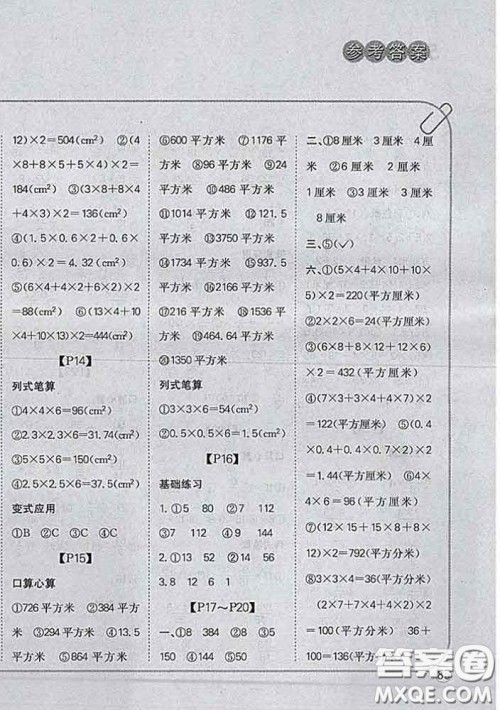 参考答案
12)×2=504(cm²) ②(4
×8+8×5+5×4)×2=
184(cm²) ③(3×8+8×
4+4×3)×2=136(cm²)
④(1.5×0.6+2×0.6)
×2=4.32(cm²)
⑤(6×2+4×2+6×2)×2
=88(cm²) ⑥(13×4
×10+13×10)×2=444(cm²)
【P14】
列式笔算
①4×4×6=96(cm²)
②2.3×2.3×6=31.74(cm²)
③5×5×6=150(cm²)
④2.5×2.5×6=37.5(cm²)
变式应用
①B ②C ③B
【P15】
口算心算
①726平方米 ②384平方
米 ③294平方米 ④13.5
平方米 ⑤864平方米
⑥600平方米 ⑦1176平
方米 ⑧96平方米 ⑨24
平方米 ⑩486平方米
⑪1014平方米 ⑫121.5
平方米 ⑬3750平方米
⑭1734平方米 ⑮937.5
平方米 ⑯2166平方米
⑰216平方米 ⑱1536平
方米 ⑲864平方米
⑳1350平方米
列式笔算
①3×3×6=54(平方米)
②0.5×0.5×6=1.5(平方米)
【P16】
基础练习
1.①5 80 ②7 112
③7 112 ④9 144
2.①13 52 ②14 56
3.8 12 6 1
【P17～P20】
一、①8 384 ②8 ③
二、①8厘米 3厘米 4厘
米 ②6厘米 2厘米
1厘米 ③3厘米 3厘米
8厘米
三、⑤(✓)
六、①(5×4+4×10+10×
5)×2=220(平方厘米)
②2×2×6=24(平方厘米)
③(6×8+8×12+6×12)
×2=432(平方厘米)
④(7×3+7×4+3×4)×2=
122(平方厘米) ⑤(0.5×
0.4+0.4×0.7)×2=
1.44(平方厘米) ⑥4×
4×6=96(平方厘米)
⑦(12×15+15×8+12×
8)×2=792(平方分米)
⑧3×3×6=54(平方分米)
(7×2+7×4+4×2)×2=
100(平方分米) 36+
100=136(平方分米)
答案圈
MXQE.COM